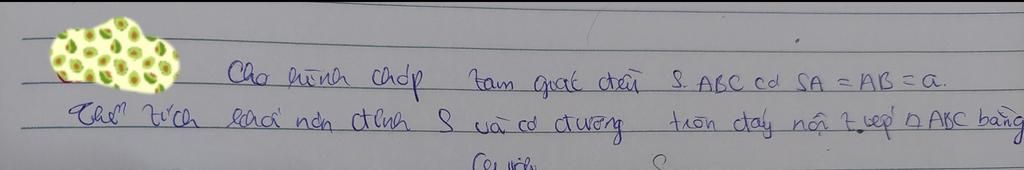 Cho hình chóp tam giác đều S.ABC có SA = AB = a.
Thể tích khối nón đỉnh S và có đường tròn đáy nội tiếp △ABC bằng